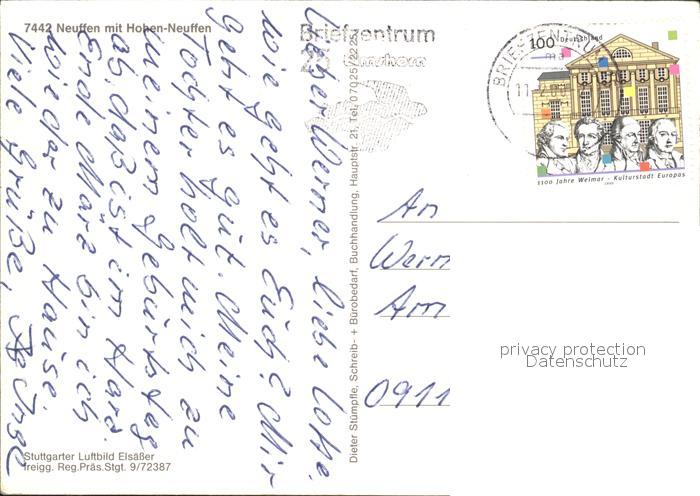 7442 Neuffen mit Hohen-Neuffen
Lieber Werner, liebe Lotte.
wie geht es Euch? Mir
geht es gut. Meine
Tochter holt mich zu
meinem Geburtstag
ab, daß ist im Harz.
Ende März bin ich
wieder zu Hause.
Viele Grüße, Inge
Stuttgarter Luftbild Elsäßer
freigg. Reg.Präs.Stgt. 9/72387
Dieter Stümpfle, Schreib- + Bürobedarf, Buchhandlung, Hauptstr. 21, Tel. 07025/2225
Briefzentrum
BRIEFZENTRUM
100 Deutschland
1100 Jahre Weimar - Kulturstadt Europas
1999
An
Wern
Am
0911
privacy protection
Datenschutz